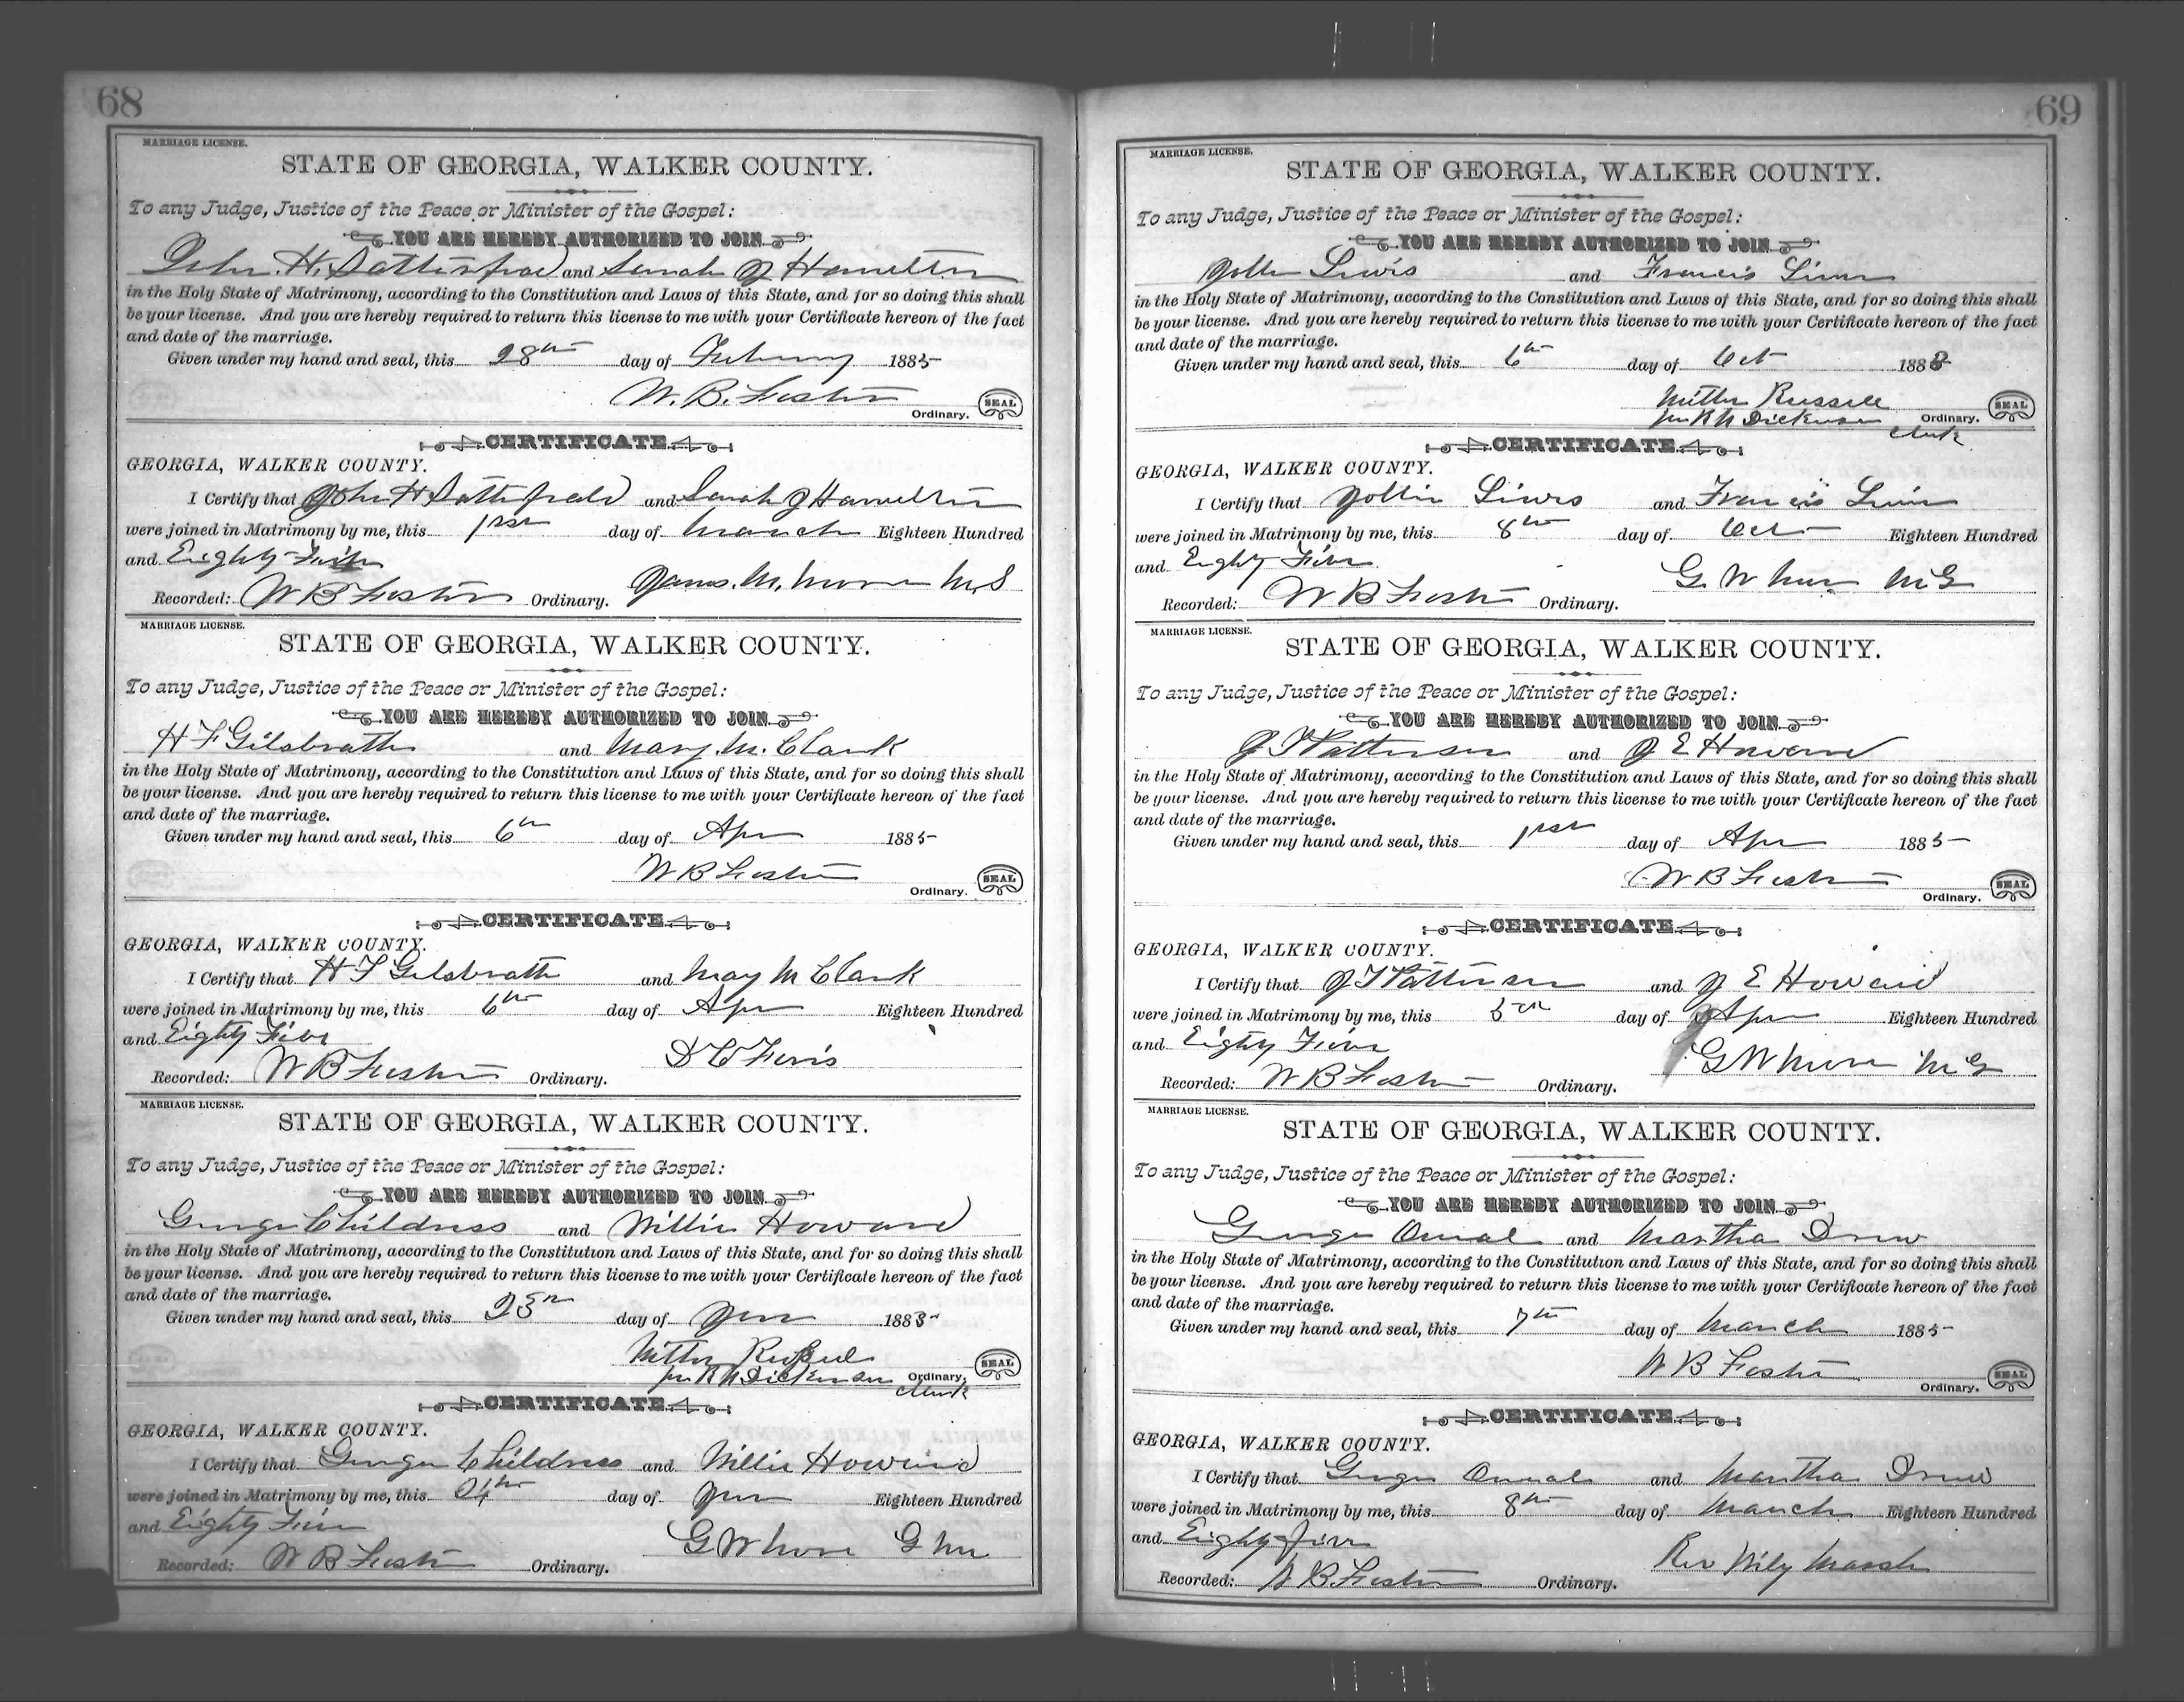 68
MARRIAGE LICENSE.
STATE OF GEORGIA, WALKER COUNTY.
To any Judge, Justice of the Peace or Minister of the Gospel:
YOU ARE HEREBY AUTHORIZED TO JOIN
John H. Satterfield and Sarah J Hamilton
in the Holy State of Matrimony, according to the Constitution and Laws of this State, and for so doing this shall
be your license. And you are hereby required to return this license to me with your Certificate hereon of the fact
and date of the marriage.
Given under my hand and seal, this 28th day of February 1885
W. B. Foster
Ordinary. SEAL
CERTIFICATE
GEORGIA, WALKER COUNTY.
I Certify that John H Satterfield and Sarah J Hamilton
were joined in Matrimony by me, this 1rst day of March Eighteen Hundred
and Eighty Five
Recorded: W B Foster Ordinary. James. M.
MARRIAGE LICENSE.
STATE OF GEORGIA, WALKER COUNTY.
To any Judge, Justice of the Peace or Minister of the Gospel:
YOU ARE HEREBY AUTHORIZED TO JOIN
H F Gilsbrath and Mary. M. Clark
in the Holy State of Matrimony, according to the Constitution and Laws of this State, and for so doing this shall
be your license. And you are hereby required to return this license to me with your Certificate hereon of the fact
and date of the marriage.
Given under my hand and seal, this 6th day of Apr 1885
W B Foster
Ordinary. SEAL
CERTIFICATE
GEORGIA, WALKER COUNTY.
I Certify that H F Gilsbrath and Mary M Clark
were joined in Matrimony by me, this 6th day of Apr Eighteen Hundred
and Eighty Five
Recorded: W B Foster Ordinary.
MARRIAGE LICENSE.
STATE OF GEORGIA, WALKER COUNTY.
To any Judge, Justice of the Peace or Minister of the Gospel:
YOU ARE HEREBY AUTHORIZED TO JOIN
George Childress and Willie Howard
in the Holy State of Matrimony, according to the Constitution and Laws of this State, and for so doing this shall
be your license. And you are hereby required to return this license to me with your Certificate hereon of the fact
and date of the marriage.
Given under my hand and seal, this day of 188
Milton Russell
per R N Dickerson Ordinary. SEAL
Clerk
CERTIFICATE
GEORGIA, WALKER COUNTY.
I Certify that George Childress and Willie Howard
were joined in Matrimony by me, this 24th day of Eighteen Hundred
and Eighty Five
Recorded: W B Foster Ordinary. G W
69
MARRIAGE LICENSE.
STATE OF GEORGIA, WALKER COUNTY.
To any Judge, Justice of the Peace or Minister of the Gospel:
YOU ARE HEREBY AUTHORIZED TO JOIN
Lewis and Francis
in the Holy State of Matrimony, according to the Constitution and Laws of this State, and for so doing this shall
be your license. And you are hereby required to return this license to me with your Certificate hereon of the fact
and date of the marriage.
Given under my hand and seal, this 6th day of Oct 188
Milton Russell
per R N Dickerson Ordinary. SEAL
Clerk
CERTIFICATE
GEORGIA, WALKER COUNTY.
I Certify that and Francis
were joined in Matrimony by me, this 8th day of Oct Eighteen Hundred
and Eighty Five
Recorded: W B Foster Ordinary. G. W
MARRIAGE LICENSE.
STATE OF GEORGIA, WALKER COUNTY.
To any Judge, Justice of the Peace or Minister of the Gospel:
YOU ARE HEREBY AUTHORIZED TO JOIN
J T Patterson and J E Howard
in the Holy State of Matrimony, according to the Constitution and Laws of this State, and for so doing this shall
be your license. And you are hereby required to return this license to me with your Certificate hereon of the fact
and date of the marriage.
Given under my hand and seal, this 1rst day of Apr 1885
W B Foster
Ordinary. SEAL
CERTIFICATE
GEORGIA, WALKER COUNTY.
I Certify that J T Patterson and J E Howard
were joined in Matrimony by me, this day of Apr Eighteen Hundred
and Eighty Five
Recorded: W B Foster Ordinary. G W
MARRIAGE LICENSE.
STATE OF GEORGIA, WALKER COUNTY.
To any Judge, Justice of the Peace or Minister of the Gospel:
YOU ARE HEREBY AUTHORIZED TO JOIN
George and Martha Drew
in the Holy State of Matrimony, according to the Constitution and Laws of this State, and for so doing this shall
be your license. And you are hereby required to return this license to me with your Certificate hereon of the fact
and date of the marriage.
Given under my hand and seal, this 7th day of March 1885
W B Foster
Ordinary. SEAL
CERTIFICATE
GEORGIA, WALKER COUNTY.
I Certify that George and Martha Drew
were joined in Matrimony by me, this 8th day of March Eighteen Hundred
and Eighty five
Recorded: W B. Foster Ordinary. Rev Wily Marsh